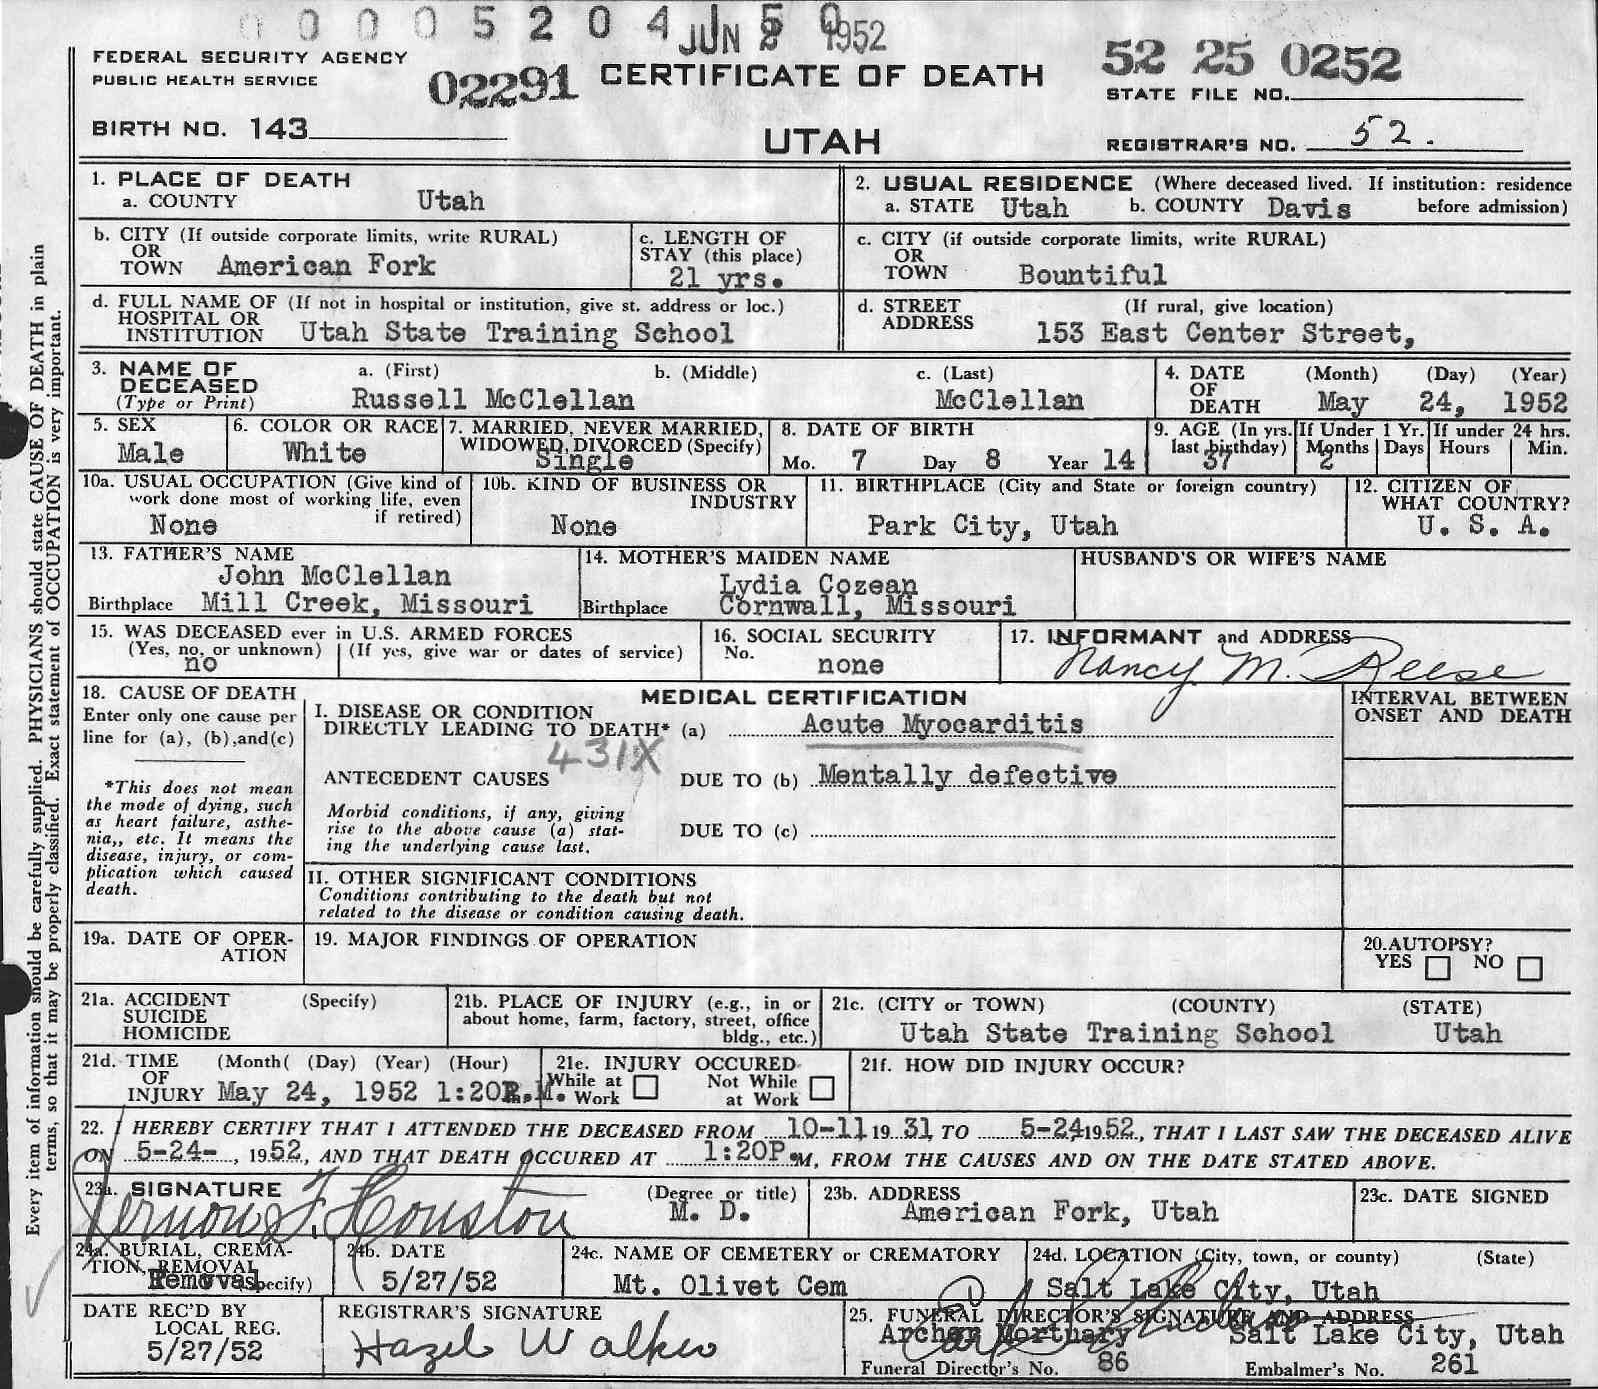 0 0 0 0 5 2 0 4 JUN 1952
FEDERAL SECURITY AGENCY
PUBLIC HEALTH SERVICE
02291 CERTIFICATE OF DEATH
52 25 0252
STATE FILE NO.
BIRTH NO. 143
UTAH
REGISTRAR'S NO. 52.
Every item of information should be carefully supplied. PHYSICIANS should state CAUSE OF DEATH in plain
terms, so that it may be properly classified. Exact statement of OCCUPATION is very important.
1. PLACE OF DEATH
a. COUNTY Utah
2. USUAL RESIDENCE (Where deceased lived. If institution: residence
a. STATE Utah b. COUNTY Davis before admission)
b. CITY (If outside corporate limits, write RURAL)
OR
TOWN American Fork
c. LENGTH OF
STAY (this place)
21 yrs.
c. CITY (if outside corporate limits, write RURAL)
OR
TOWN Bountiful
d. FULL NAME OF (If not in hospital or institution, give st. address or loc.)
HOSPITAL OR
INSTITUTION Utah State Training School
d. STREET (If rural, give location)
ADDRESS 153 East Center Street,
3. NAME OF a. (First) b. (Middle) c. (Last)
DECEASED
(Type or Print) Russell McClellan McClellan
4. DATE (Month) (Day) (Year)
OF
DEATH May 24, 1952
5. SEX
Male
6. COLOR OR RACE
White
7. MARRIED, NEVER MARRIED,
WIDOWED, DIVORCED (Specify)
Single
8. DATE OF BIRTH
Mo. 7 Day 8 Year 14
9. AGE (In yrs.
last birthday)
37
If Under 1 Yr.
Months Days
2
If under 24 hrs.
Hours Min.
10a. USUAL OCCUPATION (Give kind of
work done most of working life, even
if retired)
None
10b. KIND OF BUSINESS OR
INDUSTRY
None
11. BIRTHPLACE (City and State or foreign country)
Park City, Utah
12. CITIZEN OF
WHAT COUNTRY?
U. S. A.
13. FATHER'S NAME
John McClellan
Birthplace Mill Creek, Missouri
14. MOTHER'S MAIDEN NAME
Lydia Cozean
Birthplace Cornwall, Missouri
HUSBAND'S OR WIFE'S NAME
15. WAS DECEASED ever in U.S. ARMED FORCES
(Yes, no, or unknown) (If yes, give war or dates of service)
no
16. SOCIAL SECURITY
No.
none
17. INFORMANT and ADDRESS
Nancy M. Reese
18. CAUSE OF DEATH
Enter only one cause per
line for (a), (b),and(c)
*This does not mean
the mode of dying, such
as heart failure, asthe-
nia,, etc. It means the
disease, injury, or com-
plication which caused
death.
MEDICAL CERTIFICATION
I. DISEASE OR CONDITION
DIRECTLY LEADING TO DEATH* (a) Acute Myocarditis
431X
ANTECEDENT CAUSES DUE TO (b) Mentally defective
Morbid conditions, if any, giving
rise to the above cause (a) stat-
ing the underlying cause last.
DUE TO (c)
INTERVAL BETWEEN
ONSET AND DEATH
II. OTHER SIGNIFICANT CONDITIONS
Conditions contributing to the death but not
related to the disease or condition causing death.
19a. DATE OF OPER-
ATION
19. MAJOR FINDINGS OF OPERATION
20. AUTOPSY?
YES NO
21a. ACCIDENT (Specify)
SUICIDE
HOMICIDE
21b. PLACE OF INJURY (e.g., in or
about home, farm, factory, street, office
bldg., etc.)
21c. (CITY or TOWN) (COUNTY) (STATE)
Utah State Training School Utah
21d. TIME (Month( (Day) (Year) (Hour)
OF
INJURY May 24, 1952 1:20P.M.
21e. INJURY OCCURED
While at Work Not While at Work
21f. HOW DID INJURY OCCUR?
22. I HEREBY CERTIFY THAT I ATTENDED THE DECEASED FROM 10-11 19 31, TO 5-24, 1952, THAT I LAST SAW THE DECEASED ALIVE
ON 5-24-, 1952, AND THAT DEATH OCCURED AT 1:20P.M, FROM THE CAUSES AND ON THE DATE STATED ABOVE.
23a. SIGNATURE (Degree or title)
Vernon F. Houston M. D.
23b. ADDRESS
American Fork, Utah
23c. DATE SIGNED
24a. BURIAL, CREMA-
TION, REMOVAL
Removal (Specify)
24b. DATE
5/27/52
24c. NAME OF CEMETERY or CREMATORY
Mt. Olivet Cem
24d. LOCATION (City, town, or county) (State)
Salt Lake City, Utah
DATE REC'D BY
LOCAL REG.
5/27/52
REGISTRAR'S SIGNATURE
Hazel Walker
25. FUNERAL DIRECTOR'S SIGNATURE AND ADDRESS
Archer Mortuary Salt Lake City, Utah
Funeral Director's No. 86 Embalmer's No. 261